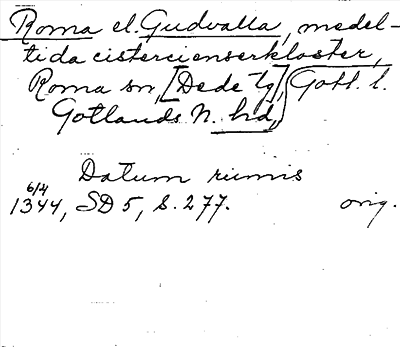 Roma el. Gudvalla, medel-
tida cistercienserkloster,
Roma sn, [Dede tg], Gotl. l.
Gotlands N. hd,
Datum rumis
6/4
1344, SD 5, s. 277. orig.